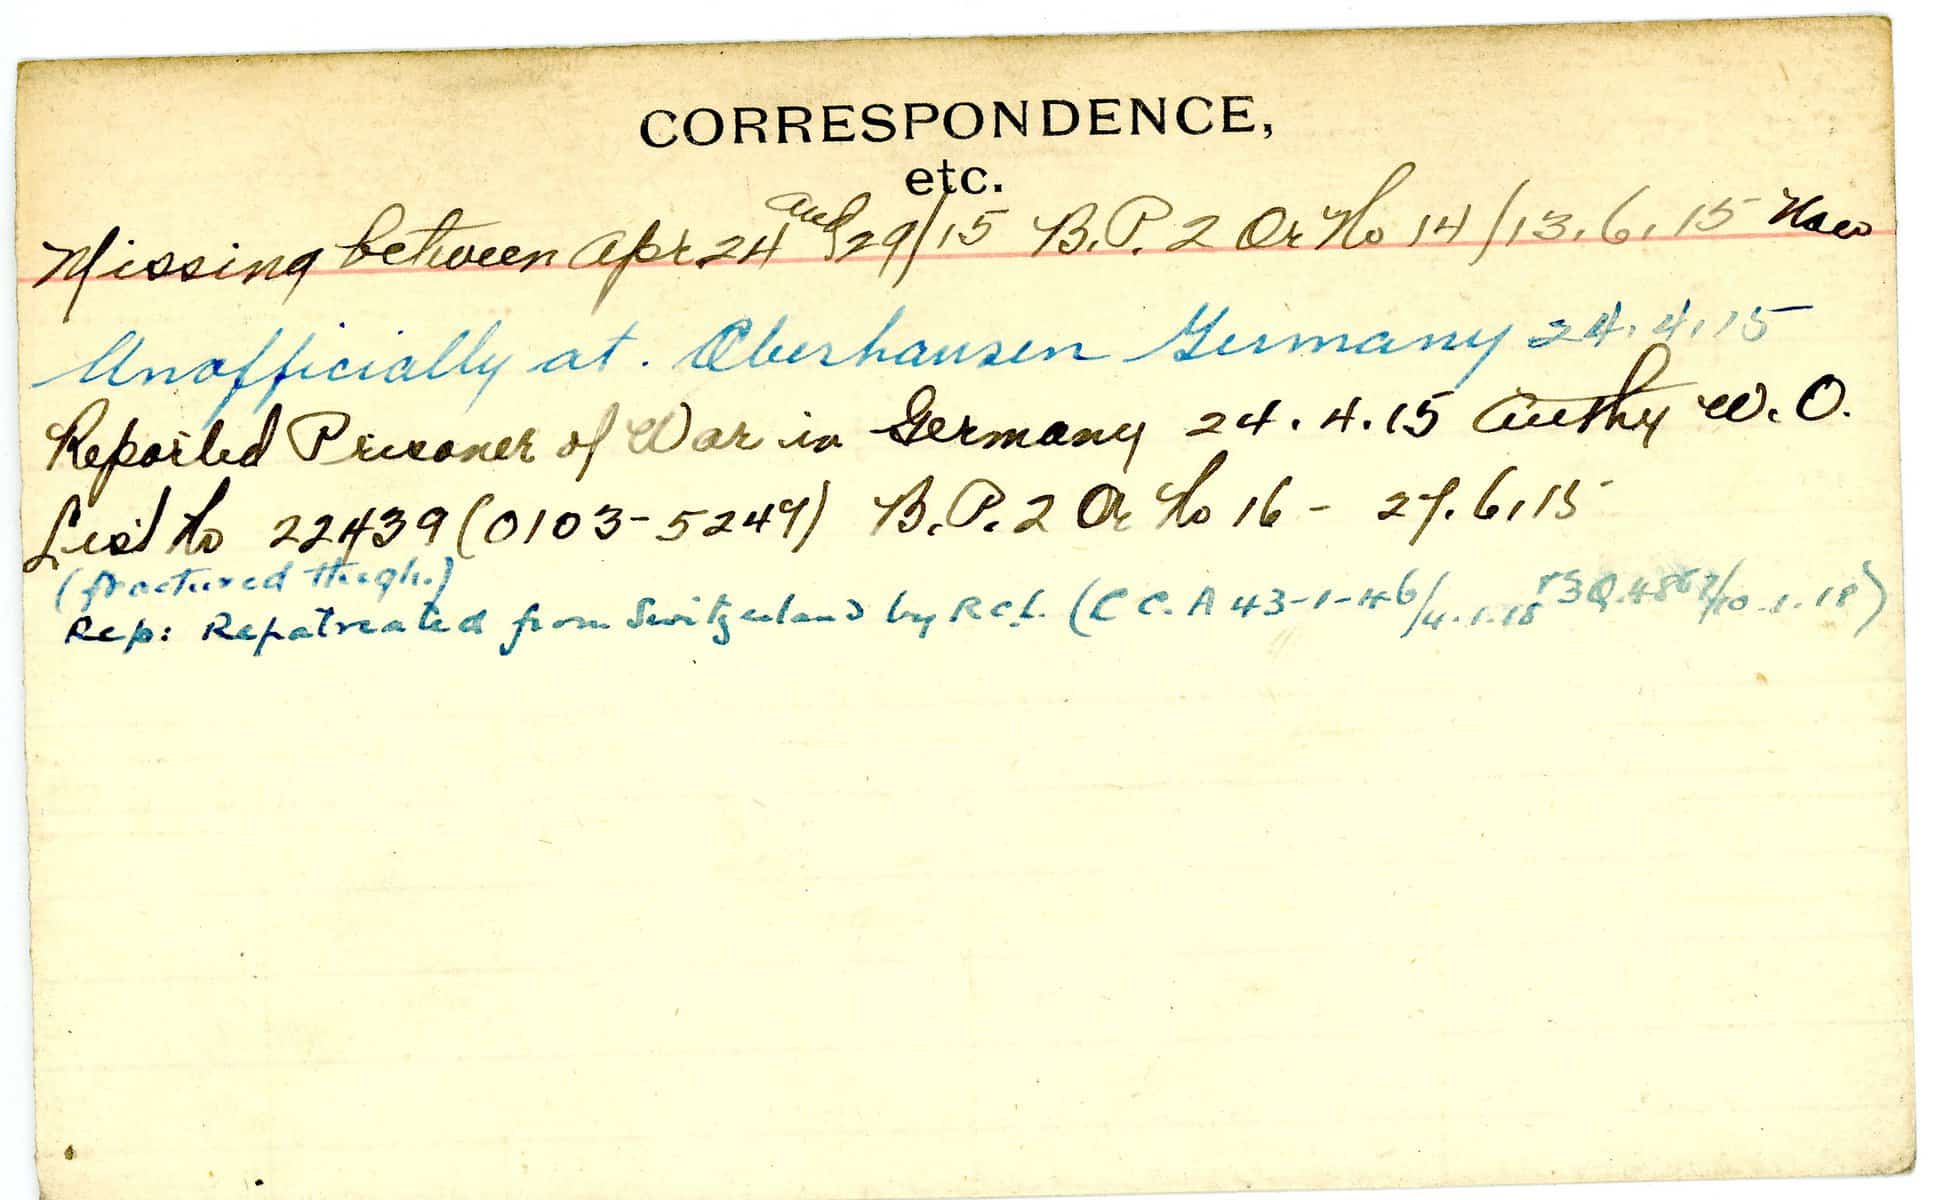 CORRESPONDENCE,
etc.
Missing between Apr 24 and 29/15 B.P. 2 Or No 14/13.6.15 Now
Unofficially at. Oberhausen Germany 24.4.15
Reported Prisoner of War in Germany 24.4.15 Authy W.O.
List No 22439 (0103-5247) B.P. 2 Or No 16 - 27.6.15
(fractured thigh.)
Rep: Repatreated from Switzerland by R.C.L. (C C. A 43-1-46/4.1.18 10.1.18)